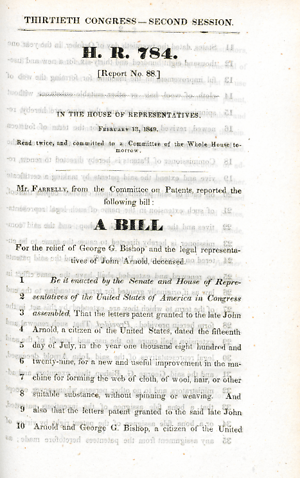 THIRTIETH CONGRESS—SECOND SESSION.
H. R. 784.
[Report No. 88]
IN THE HOUSE OF REPRESENTATIVES.
February 13, 1849.
Read twice, and committed to a Committee of the Whole House to-
morrow.
Mr. Farrelly, from the Committee on Patents, reported the
following bill:
A BILL
For the relief of George G. Bishop and the legal representa-
tives of John Arnold, deceased.
1 Be it enacted by the Senate and House of Repre-
2 sentatives of the United States of America in Congress
3 assembled, That the letters patent granted to the late John
4 Arnold, a citizen of the United States, dated the fifteenth
5 day of July, in the year one thousand eight hundred and
6 twenty-nine, for a new and useful improvement in the ma-
7 chine for forming the web of cloth, of wool, hair, or other
8 suitable substance, without spinning or weaving. And
9 also that the letters patent granted to the said late John
10 Arnold and George G. Bishop, a citizen of the United